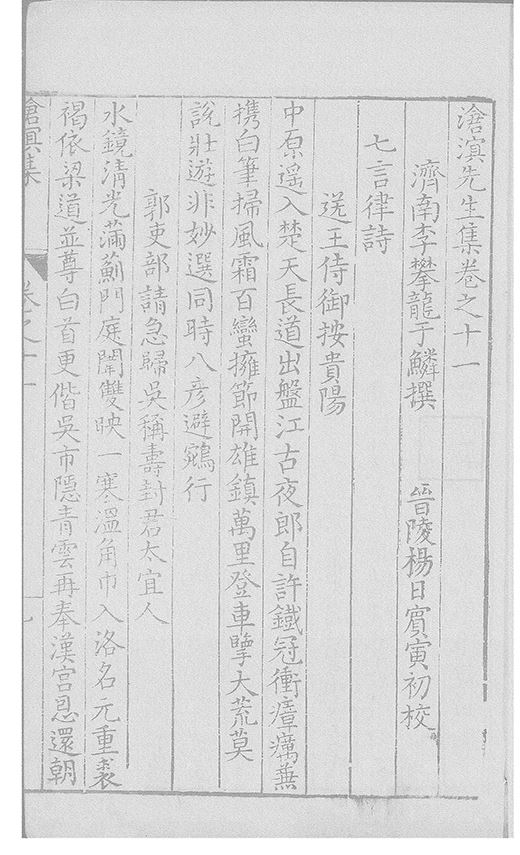 滄溟先生集卷之十一
濟南李攀龍于鱗撰　晉陵楊日賓寅初校
七言律詩
送王侍御按貴陽
中原遙入楚天長道出盤江古夜郎自許鐵冠衝瘴癘蕪
携白筆掃風霜百蠻擁節開雄鎮萬里登車擥大荒莫
說壯遊非妙選同時八彥避鵷行
郭吏部請急歸吳稱壽封君太宜人
水鏡清光滿薊門庭闈雙映一寒溫角巾入洛名元重裘
褐依梁道並尊白首更偕吳市隱青雲再奉漢宮恩還朝
滄溟集　卷之十一